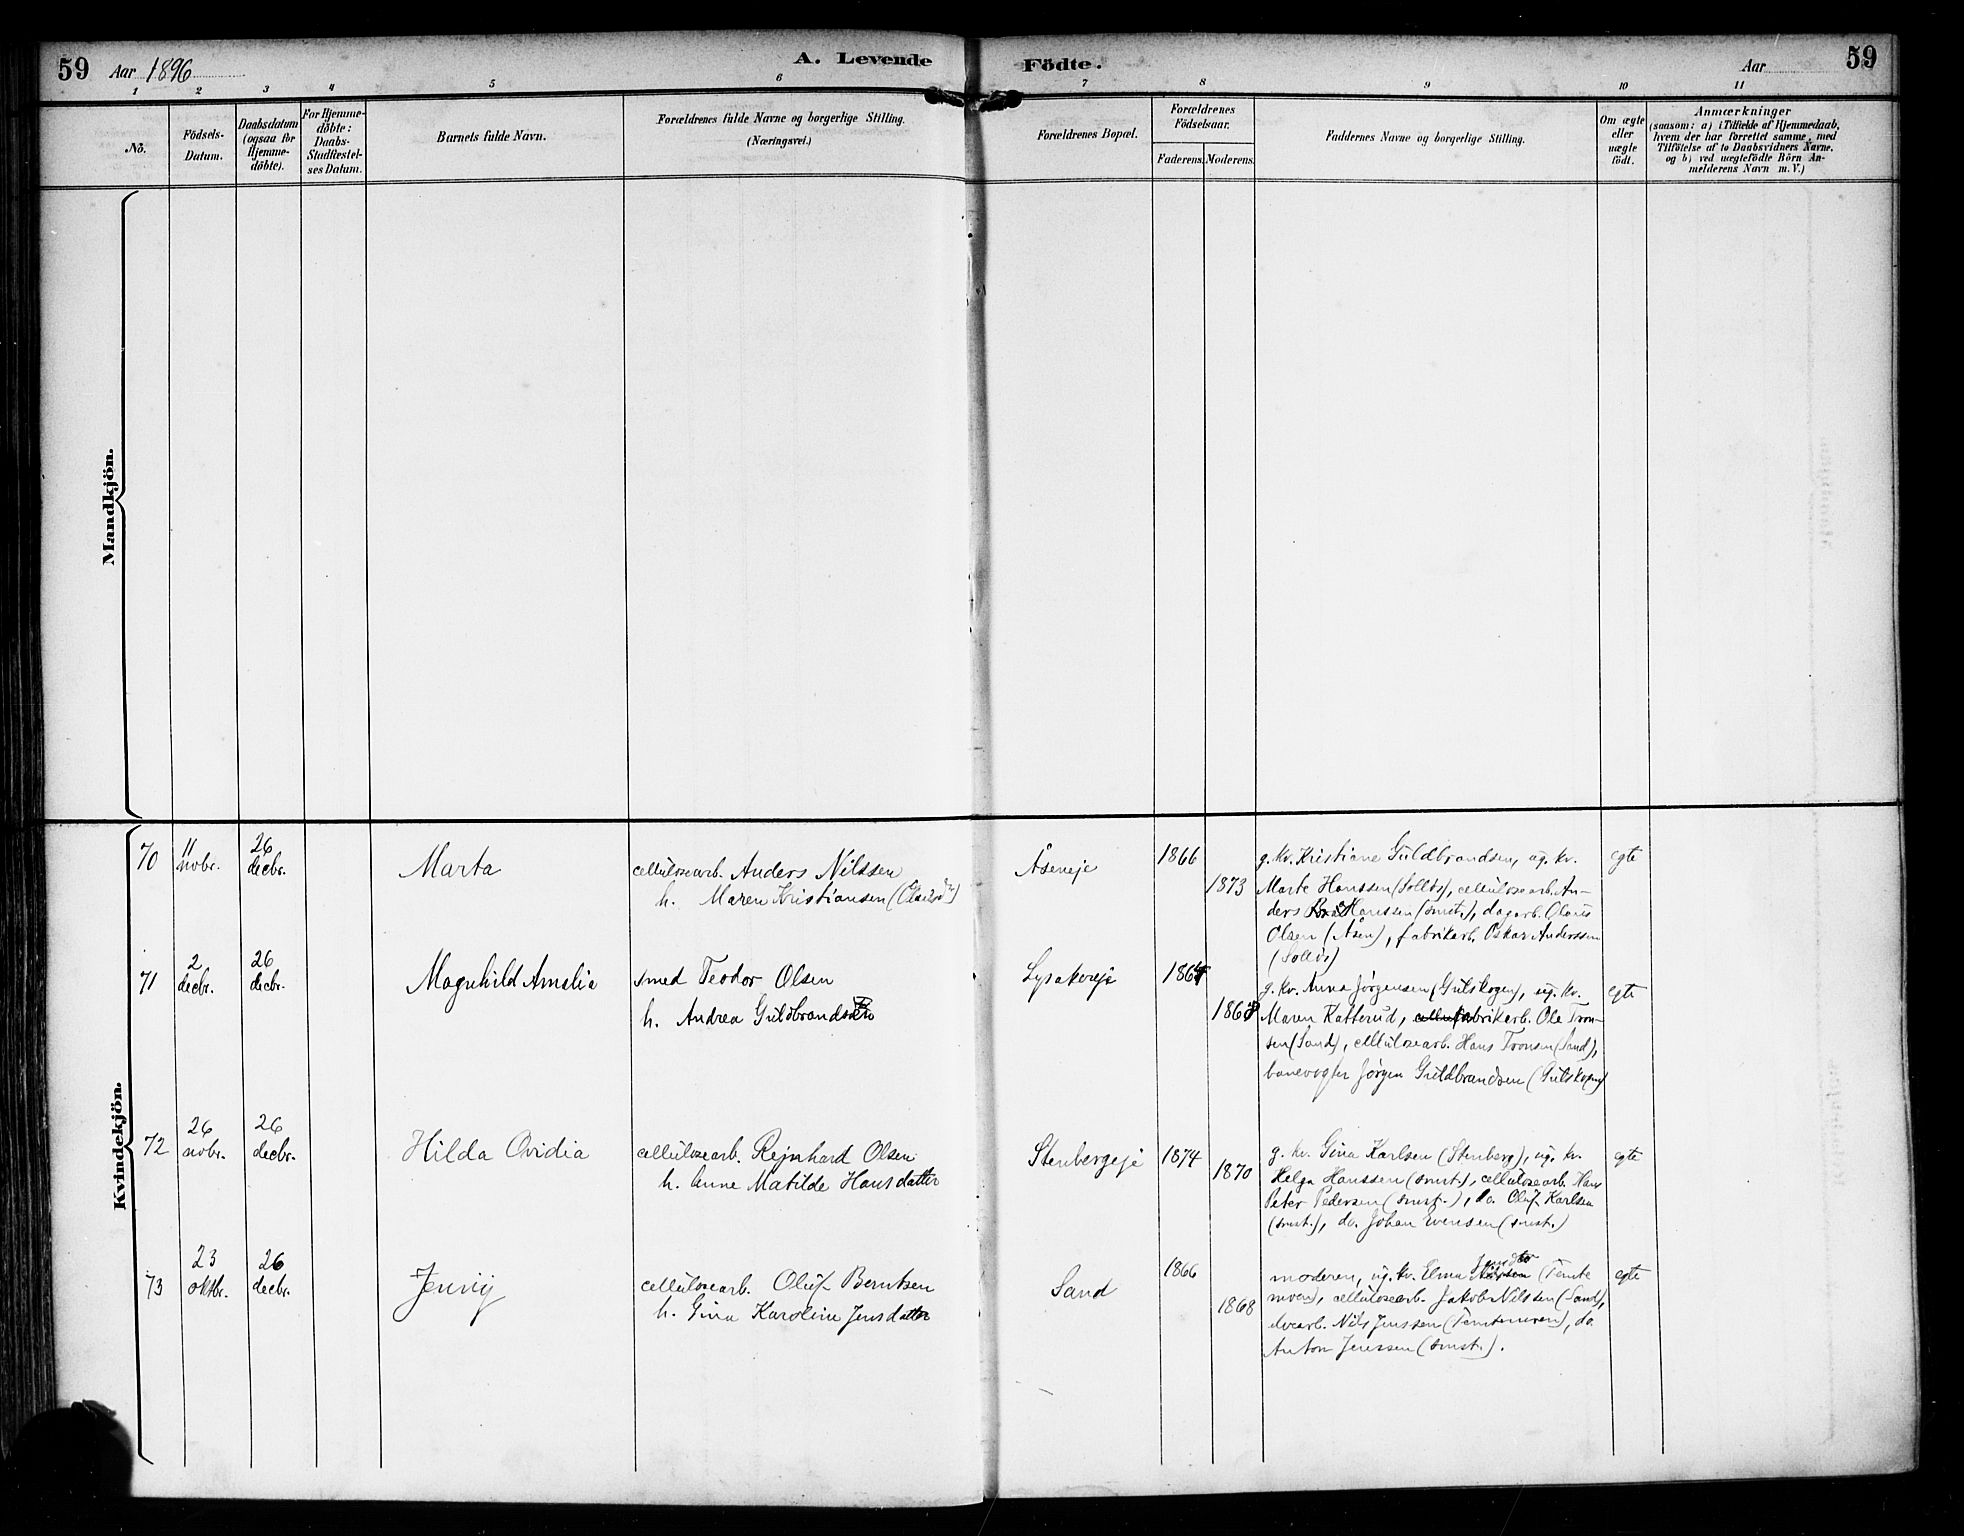 59 Aar 1896 A. Levende Födte. Aar 59
1 2 3 4 5 6 7 8 9 10 11
No.
Födsels-
Datum.
Daabsdatum
(ogsaa for
Hjemme-
döbte).
For Hjemme-
döbte:
Daabs-
Stadfæstel-
ses Datum.
Barnets fulde Navn.
Forældrenes fulde Navne og borgerlige Stilling.
(Næringsvei.)
Forældrenes Bopæl.
Forældrenes
Födselsaar.
Faderens. Moderens.
Faddernes Navne og borgerlige Stilling.
Om ægte
eller
uægte
födt.
Anmærkninger
(saasom: a) i Tilfælde af Hjemmedaab,
hvem der har forrettet samme, med
Tilföielse af to Daabsvidners Navne.
og b) ved uægtefödte Börn An-
melderens Navn m. V.)
Mandkjön.
Kvindekjön.
70
11
novbr.
26
decbr.
Marta
cellulosearb. Anders Nilssen
h. Maren Kristiansen
Åseneje
1866
1873
g. kv. Kristiane Guldbrandsen, ug. kv.
Marte Hanssen (Solløs), cellulosearb. An-
ders Hanssen (smst.), dagarb. Olaus
Olsen (Åsen), fabrikarb. Oskar Anderssen
(Solløs)
egte
71
2
decbr.
26
decbr.
Magnhild Amalia
smed Teodor Olsen
h. Andrea Guldbrandsen
Lysakereje
1864
1868
g. kv. Anna Jørgensen (Gulskogen), ug. kv.
Maren Katterud, fabrikarb. Ole Tron-
sen (Sand), cellulosearb. Hans Tronsen (Sand),
banevogter Jørgen Guldbrandsen (Gulskogen)
egte
72
26
novbr.
26
decbr.
Hilda Ovidia
cellulosearb. Rejnhard Olsen
h. Anne Matilde Hansdatter
Stenbergeje
1874
1870
g. kv. Gina Karlsen (Stenberg), ug. kv.
Helga Hanssen (smst.), cellulosearb. Hans
Peter Pedersen (smst.), do. Oluf Karlsen
(smst.), do. Johan Evensen (smst.)
egte
73
23
oktbr.
26
decbr.
Jenny
cellulosearb. Oluf Berntsen
h. Gina Karoline Jensdatter
Sand
1866
1868
moderen, ug. kv. Elma (Tomte
moen), cellulosearb. Jakob Nilssen (Sand),
Nils Jenssen (Tomtemoen), do.
Anton Jenssen (smst.).
egte